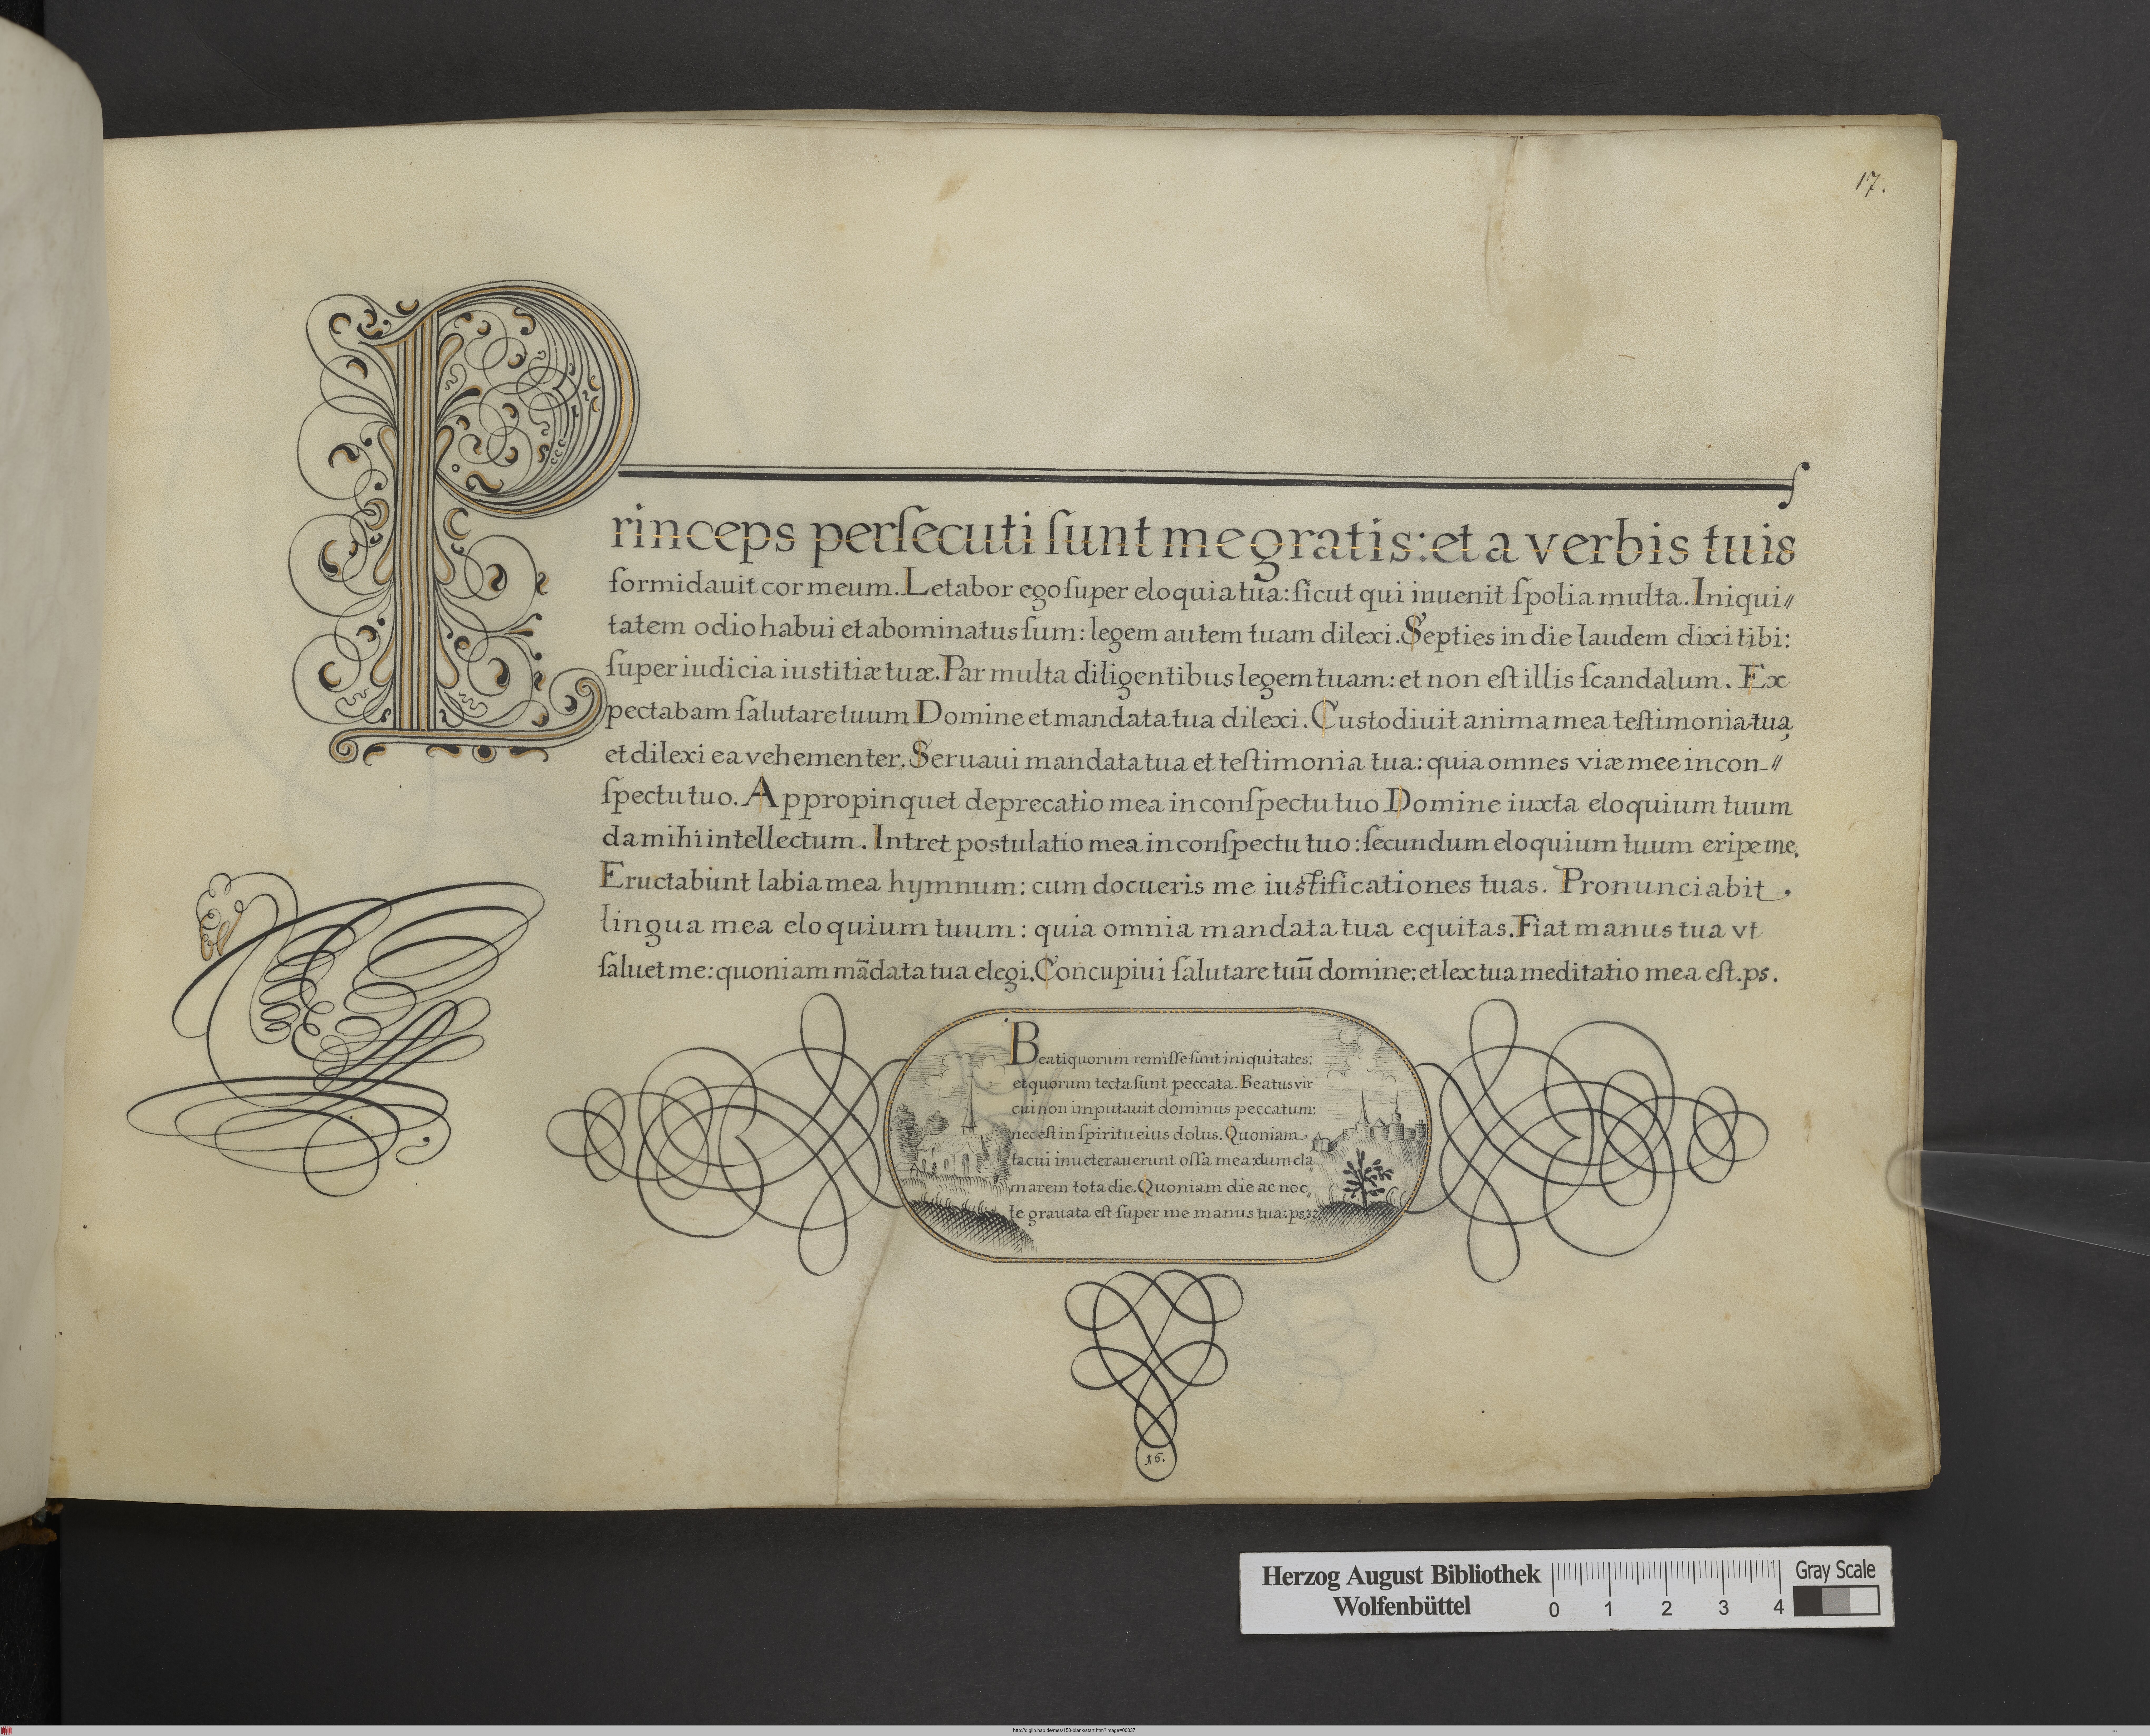 17.
Princeps perſecuti ſunt me gratis: et a verbis tuis
formidauit cor meum. Letabor ego ſuper eloquia tua: ſicut qui inuenit ſpolia multa. Iniqui〃
tatem odio habui et abominatus ſum: legem autem tuam dilexi. Septies in die laudem dixi tibi:
ſuper iudicia iustitiæ tuæ. Par multa diligentibus legem tuam: et non eſt illis ſcandalum. Ex
pectabam ſalutare tuum Domine et mandata tua dilexi. Custodiuit anima mea teſtimonia tua,
et dilexi ea vehementer. Seruaui mandata tua et teſtimonia tua: quia omnes viæ mee in con〃
ſpectu tuo. Appropinquet deprecatio mea in conſpectu tuo Domine iuxta eloquium tuum
da mihi intellectum. Intret postulatio mea in conſpectu tuo: ſecundum eloquium tuum eripe me.
Eructabunt labia mea hymnum: cum docueris me iuſtificationes tuas. Pronunciabit,
lingua mea eloquium tuum: quia omnia mandata tua equitas. Fiat manus tua vt
ſaluet me: quoniam mādata tua elegi. Concupiui ſalutare tuū domine: et lex tua meditatio mea eſt. ps.
Beati quorum remiſſe ſunt iniquitates:
et quorum tecta ſunt peccata. Beatus vir
cui non imputauit dominus peccatum:
nec eſt in ſpiritu eius dolus. Quoniam
tacui inueterauerunt oſſa mea: dum cla
marem tota die. Quoniam die ac noc〃
te grauata eſt ſuper me manus tua: ps:
16.
Herzog August Bibliothek
Wolfenbüttel
Gray Scale
0 1 2 3 4
http://diglib.hab.de/mss/150-blank/start.htm?image=00037